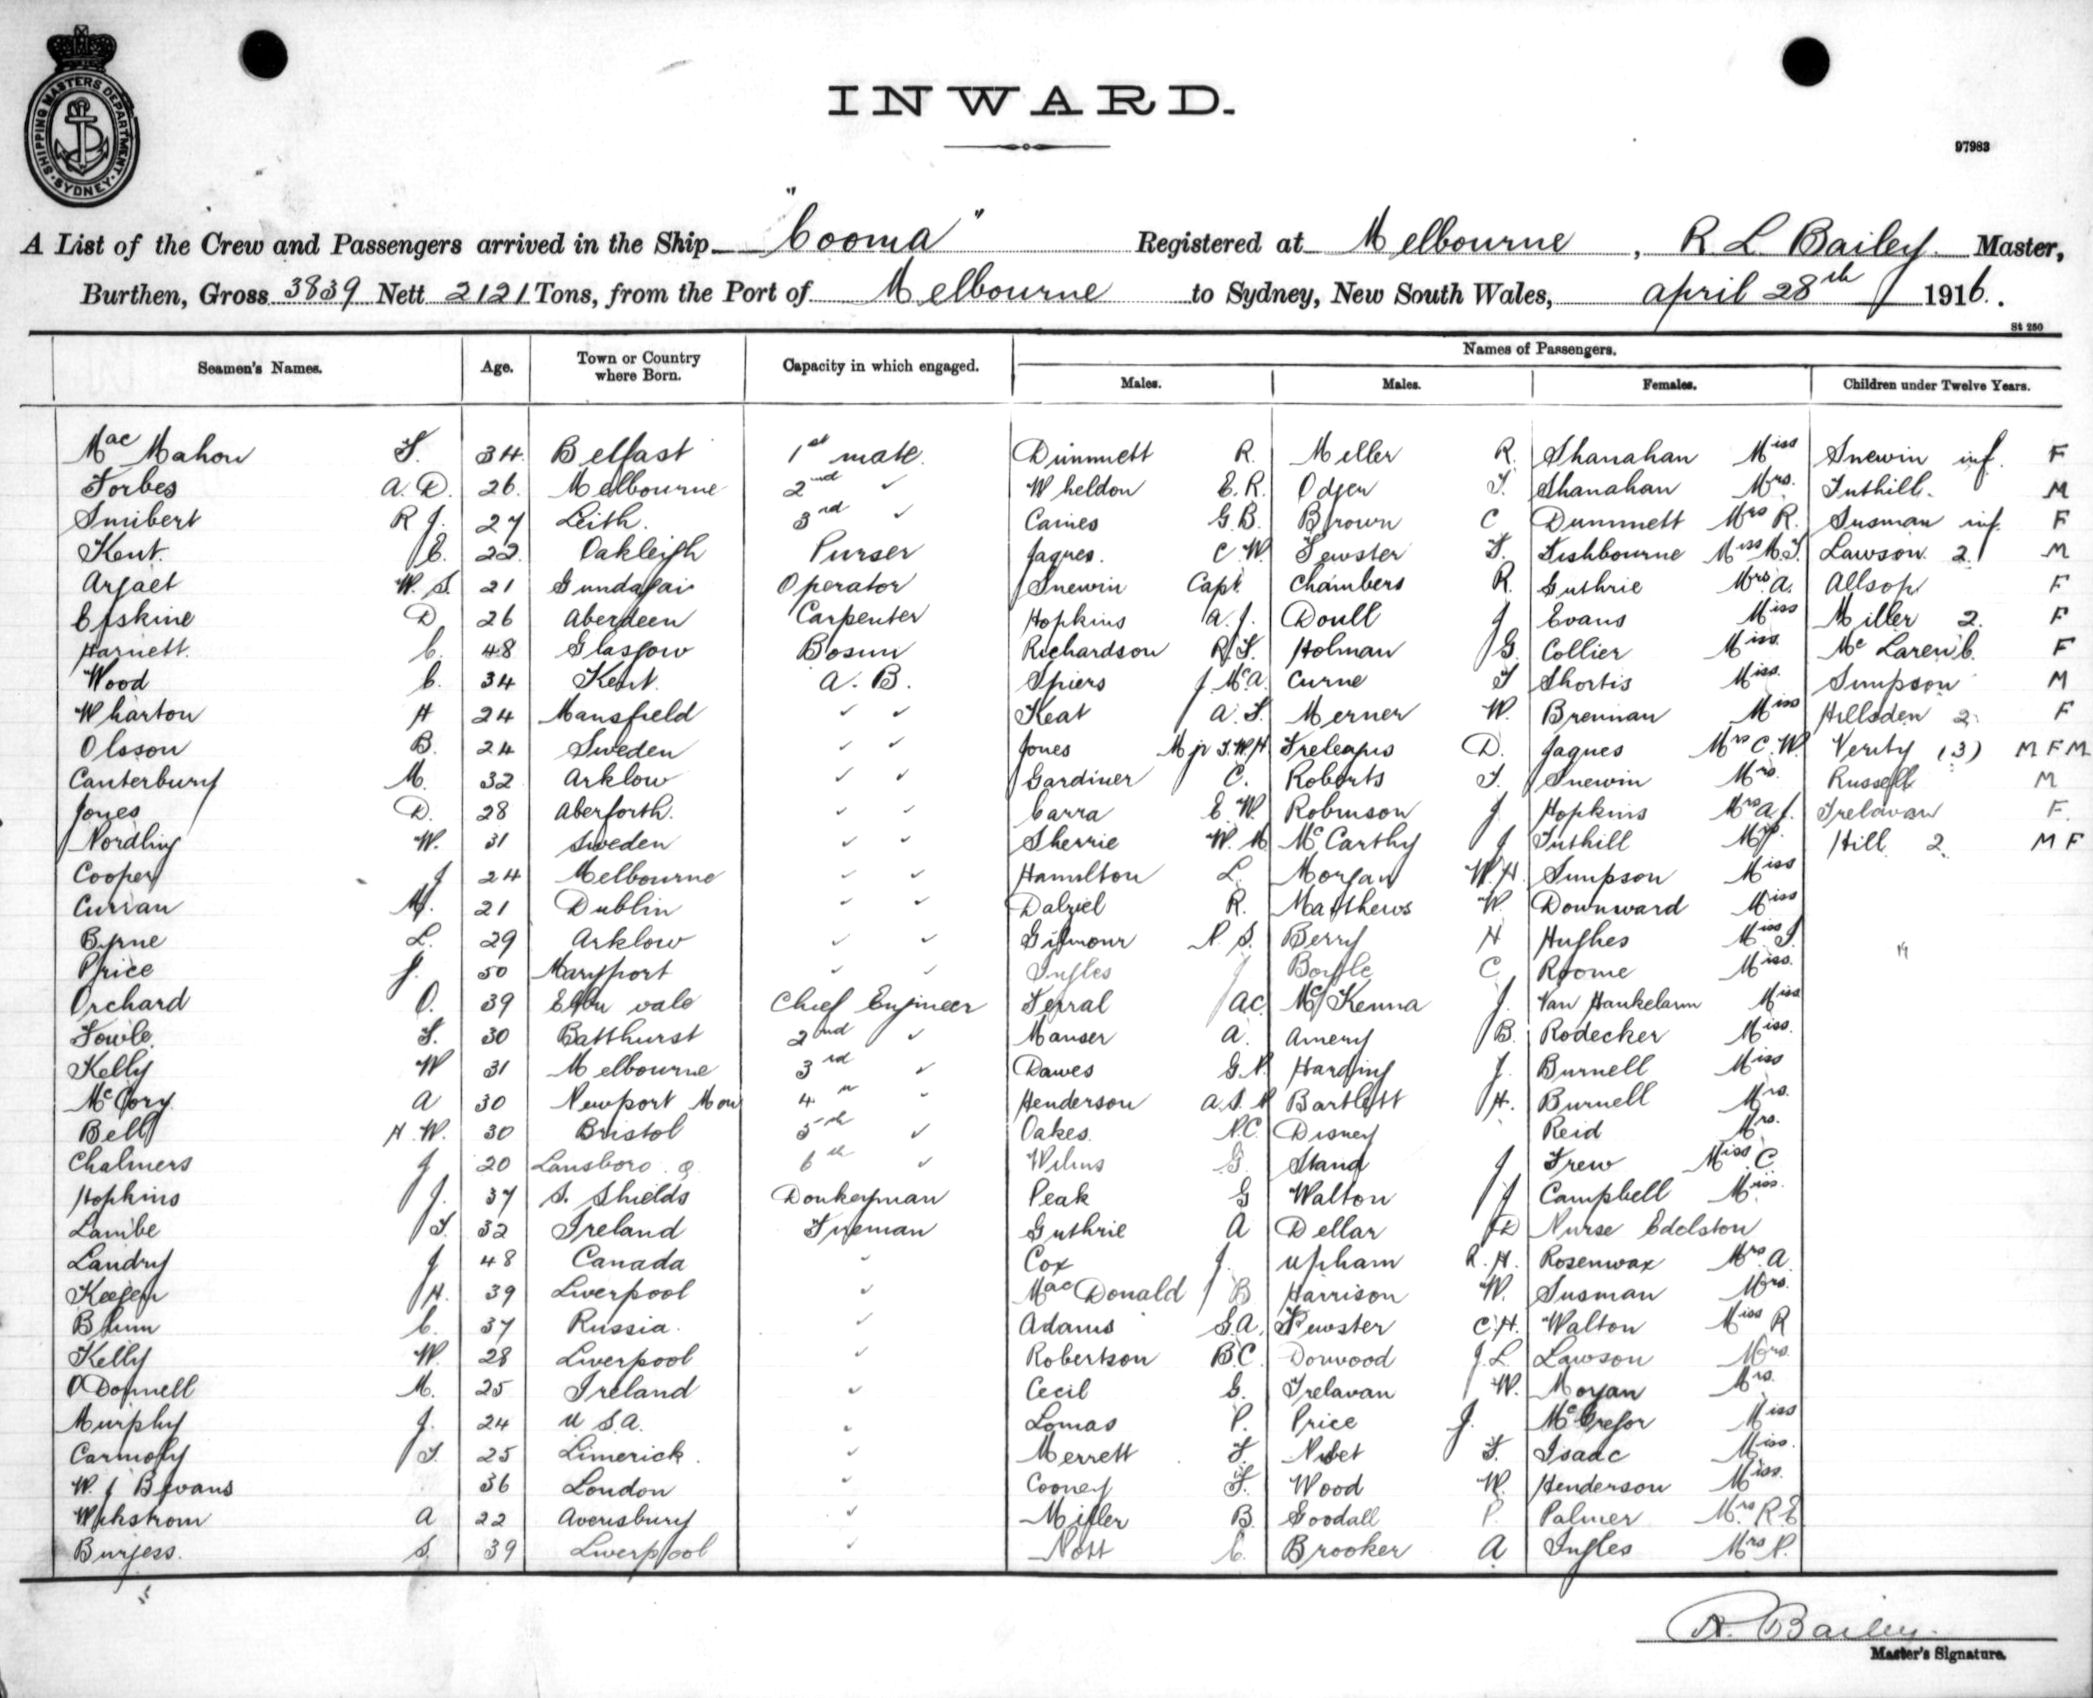 SHIPPING MASTERS DEPARTMENT · SYDNEY ·
INWARD.
97983
A List of the Crew and Passengers arrived in the Ship "Cooma" Registered at Melbourne, R. L. Bailey Master,
Burthen, Gross 3839 Nett 2121 Tons, from the Port of Melbourne to Sydney, New South Wales, april 28th 1916.
St 250
Seamen's Names. Age. Town or Country where Born. Capacity in which engaged. Names of Passengers.
Males. Males. Females. Children under Twelve Years.
Mac Mahon 34 Belfast 1st mate. Dimmett R. Miller R. Shanahan Miss Snewin inf. F
Forbes A. D. 26 Melbourne 2nd ✓ Wheldon E. R. Odgen Shanahan Mrs. Tuthill. M
Smibert R J. 27 Leith. 3rd ✓ Caines G. B. Brown C Dummett Mrs R. Susman inf. F
Kent. E. 22 Oakleigh Purser Jaques. C W. Fewster Fishbourne Miss Lawson 2 M
W. S. 21 Gundagai Operator Snewin Capt. Chambers R. Guthrie Mrs A. Allsop F
Erskine D 26 Aberdeen Carpenter Hopkins A. J. Doull J Evans Miss Miller 2. F
Harnett. C. 48 Glasgow Bosun Richardson Holman G. Collier Miss. Mc Laren F
Wood C. 34 Kent. A. B. Spiers J. McA. Curne Shortis Miss. Simpson M
Wharton H 24 Mansfield ✓ ✓ Keat Merner W. Brennan Miss Hillsden 2. F
Olsson B. 24 Sweden ✓ ✓ Jones D. Jaques Mrs C. W. Verity (3) M F M
Canterbury M. 32 Arklow ✓ ✓ Gardiner C. Roberts Snewin Mrs. Russell M
Jones D. 28 Aberforth. ✓ ✓ Carra E. W. Robinson J Hopkins Mrs A. J. Trelavan F.
Nordling W. 31 Sweden ✓ ✓ Sherrie W. M McCarthy J Tuthill Hill 2 M F
Cooper J 24 Melbourne ✓ ✓ Hamilton L. Morgan W. H. Simpson Miss
Curran M. 21 Dublin ✓ ✓ Dalziel R. Matthews W. Downward Miss
Byrne L. 29 Arklow ✓ ✓ Gilmour N. S. Berry H Hughes Miss
Price J. 50 Maryport ✓ ✓ Ingles J Boyle C Roome Miss.
Orchard O. 39 Ebbu vale Chief Engineer Ferral A C. McKenna J. Van Miss
Fowle. 30 Batthurst 2nd ✓ Manser A. Amery B. Rodecker Miss.
Kelly W 31 Melbourne 3rd ✓ Dawes G. N. Harding J. Burnell Miss
McCory A 30 Newport Mon 4th Henderson Bartlett H. Burnell Mrs.
Bell H. W. 30 Bristol 5th ✓ Oakes. N. C. Disney Reid Mrs.
Chalmers J 20 Lansboro. Q 6th ✓ G. Stand J Frew Miss C.
Hopkins J. 37 S. Shields Donkeyman Peak G Walton J Campbell Miss.
Lambe 32 Ireland Fireman Guthrie A Dellar D Nurse Edelston
Landry J 48 Canada Cox J. Upham R. H. Rosenwax Mrs A
Keegen H. 39 Liverpool ✓ Mac Donald B Harrison W. Susman Mrs.
Blum C. 37 Russia. ✓ Adams S. A. Fewster C. H. Walton Miss R
Kelly W. 28 Liverpool ✓ Robertson B. C. Donwood J. L Lawson Mrs.
O'Donnell M. 25 Ireland ✓ Cecil G. Trelavan W. Morgan Mrs.
Murphy J. 24 U S. A. Lomas P. Price J. McGregor Miss
Carmody 25 Limerick. ✓ Merrett Isaac Miss.
W. J Bevans 36 London Cooney Wood W. Henderson Miss.
Wikstrom A 22 Avensbury ✓ Miller B Goodall P. Palmer Mrs R E
Burgess. S. 39 Liverpool ✓ Nott C. Brooker A Ingles Mrs
R. Bailey.
Master's Signature.